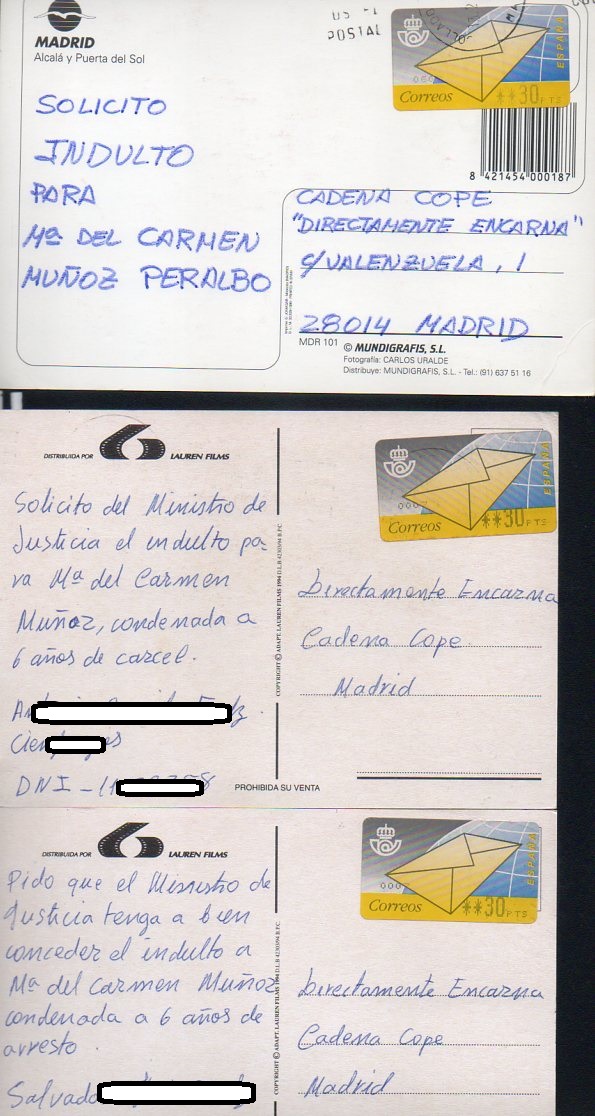 MADRID
Alcalá y Puerta del Sol
POSTAL
ESPAÑA
Correos
**30 PTS
8 421454 000187
SOLICITO
INDULTO
PARA
Mª DEL CARMEN
MUÑOZ PERALBO
CADENA COPE
"DIRECTAMENTE ENCARNA"
C/VALENZUELA, 1
28014 MADRID
MDR 101 © MUNDIGRAFIS, S.L.
Fotografía: CARLOS URALDE
Distribuye: MUNDIGRAFIS, S.L. - Tel.: (91) 637 51 16
DISTRIBUIDA POR LAUREN FILMS
ESPAÑA
Correos
**30 PTS
Solicito del Ministro de
Justicia el indulto pa-
ra Mª del Carmen
Muñoz, condenada a
6 años de carcel.
DNI -
Directamente Encarna
Cadena Cope
Madrid
COPYRIGHT © ADAPT. LAUREN FILMS 1994
PROHIBIDA SU VENTA
DISTRIBUIDA POR LAUREN FILMS
ESPAÑA
Correos
**30 PTS
Pido que el Ministro de
Justicia tenga a bien
conceder el indulto a
Mª del Carmen Muñoz
condenada a 6 años de
arresto
Salvado
Directamente Encarna
Cadena Cope
Madrid
COPYRIGHT © ADAPT. LAUREN FILMS 1994